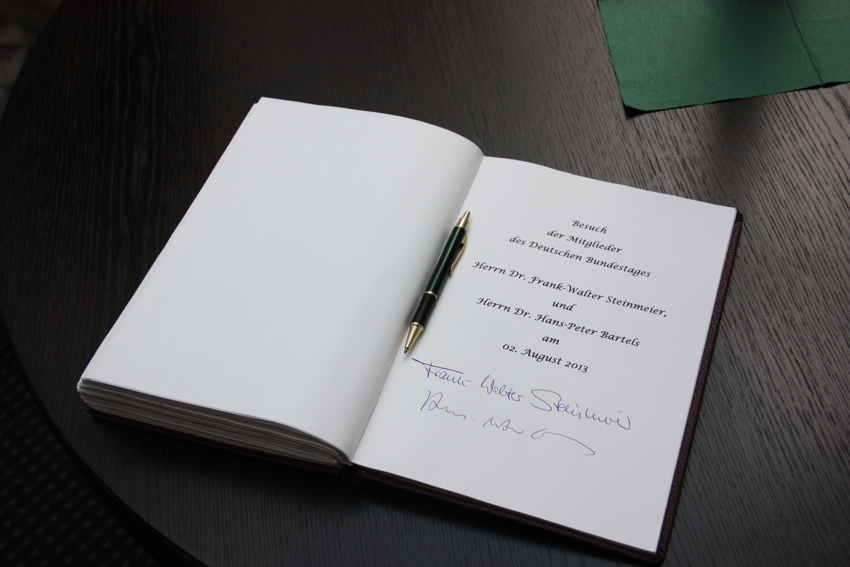 Besuch
der Mitglieder
des Deutschen Bundestages
Herrn Dr. Frank-Walter Steinmeier,
und
Herrn Dr. Hans-Peter Bartels
am
02. August 2013
Frank-Walter Steinmeier